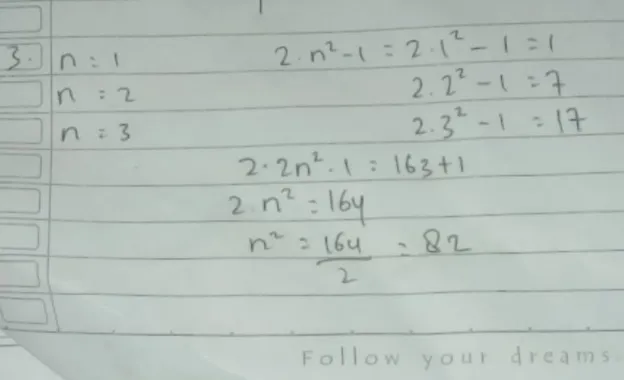 3. n = 1 2. n² - 1 = 2.1² - 1 = 1
n = 2 2.2² - 1 = 7
n = 3 2.3² - 1 = 17
2.2n².1 = 163+1
2.n² = 164
n² = 164/2 = 82
Follow your dreams